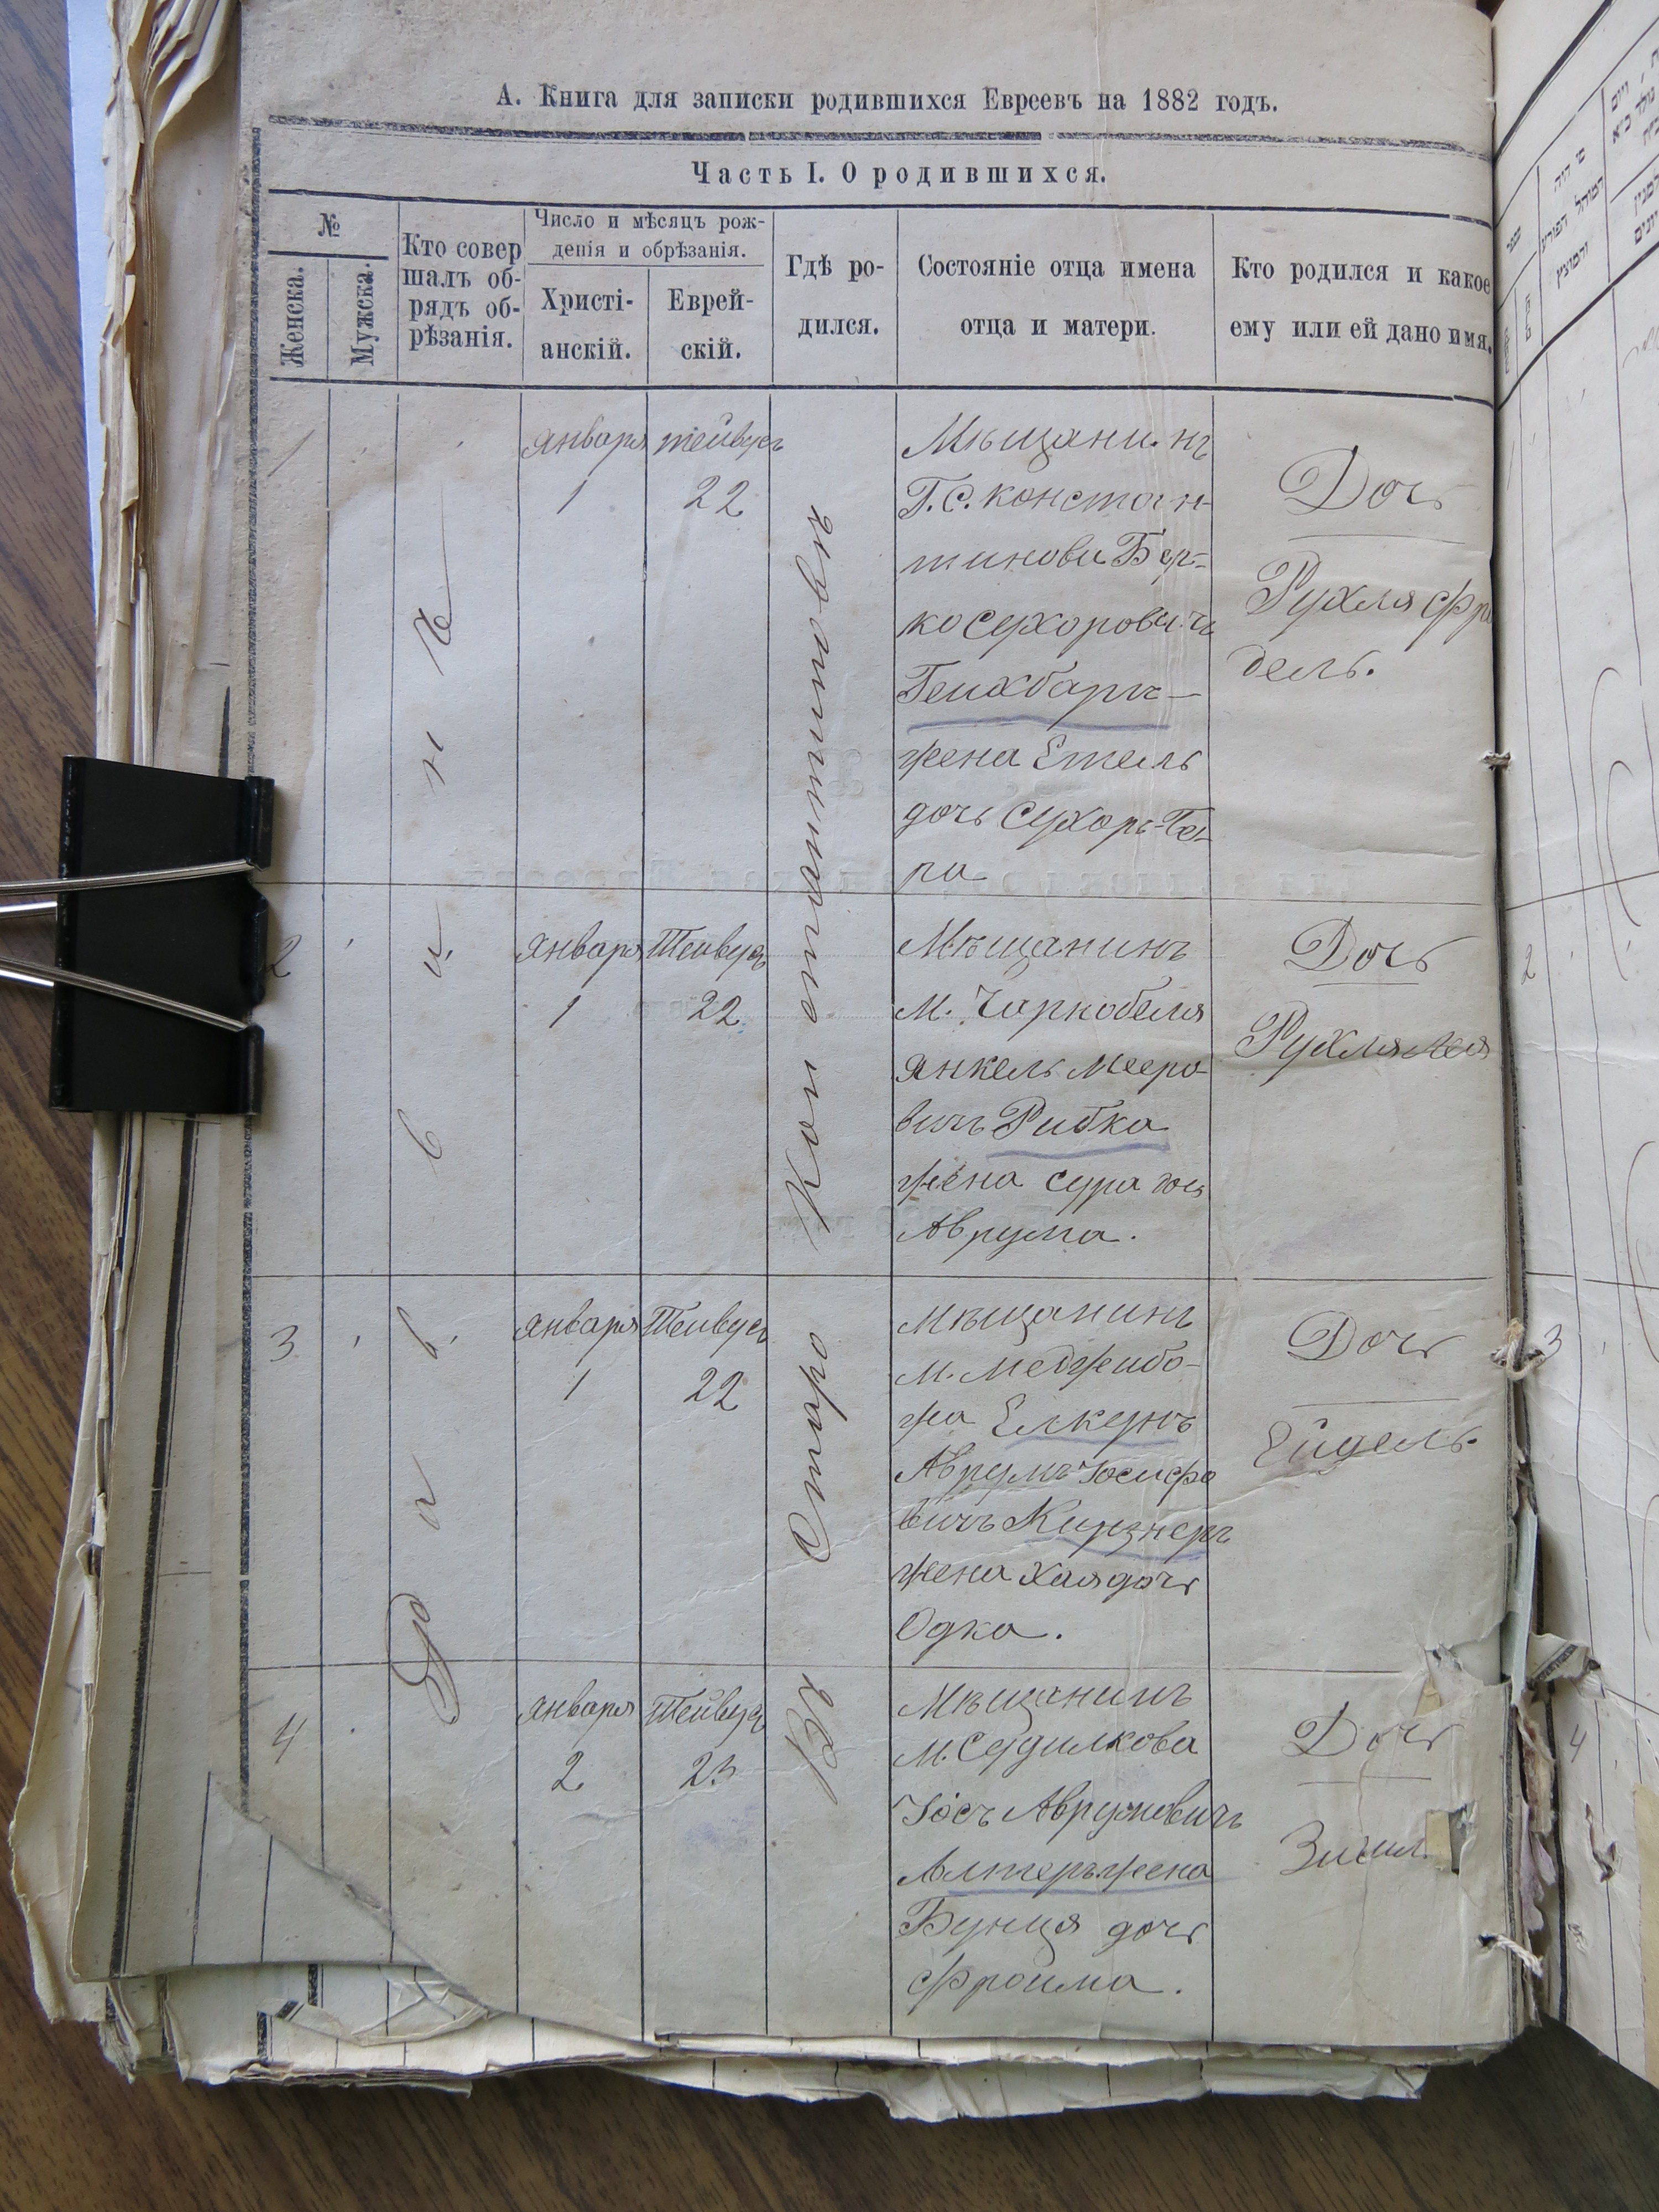 А. Книга для записки родившихся Евреевъ на 1882 годъ.
Часть I. О родившихся.
№
Женска.
Мужска.
Кто совер
шалъ об-
рядъ об-
рѣзанія.
Число и мѣсяцъ рож-
денія и обрѣзанія.
Христі-
анскій.
Еврей-
скій.
Гдѣ ро-
дился.
Состояніе отца имена
отца и матери.
Кто родился и какое
ему или ей дано имя.
Въ Старо Константиновѣ
1
января
1
тейвусъ
22
Мѣщанинъ
Г. С. констан-
тинова Бер-
ко Сухоровичъ
жена Етель
дочь Сухоръ-Бе-
ра
Дочь
Рухля Фри
дель.
2
января
1
Тейвусъ
22
Мѣщанинъ
М. Чарнобеля
Янкель Мееро-
вичъ Рибка
жена Сура
Аврума.
Дочь
Рухля Лея
3
января
1
Тейвусъ
22
Мѣщанинъ
м. Меджибо-
жа Елкунъ
Аврумъ Іосифо
вичъ Кирзнеръ
жена Хая дочь
Одка.
Дочь
Ейдель.
4
января
2
Тейвусъ
23
Мѣщанинъ
М. Судилкова
Іосъ Аврумовичъ
Алтеръ жена
Бунця дочь
Фроима.
Дочь
2
3
4